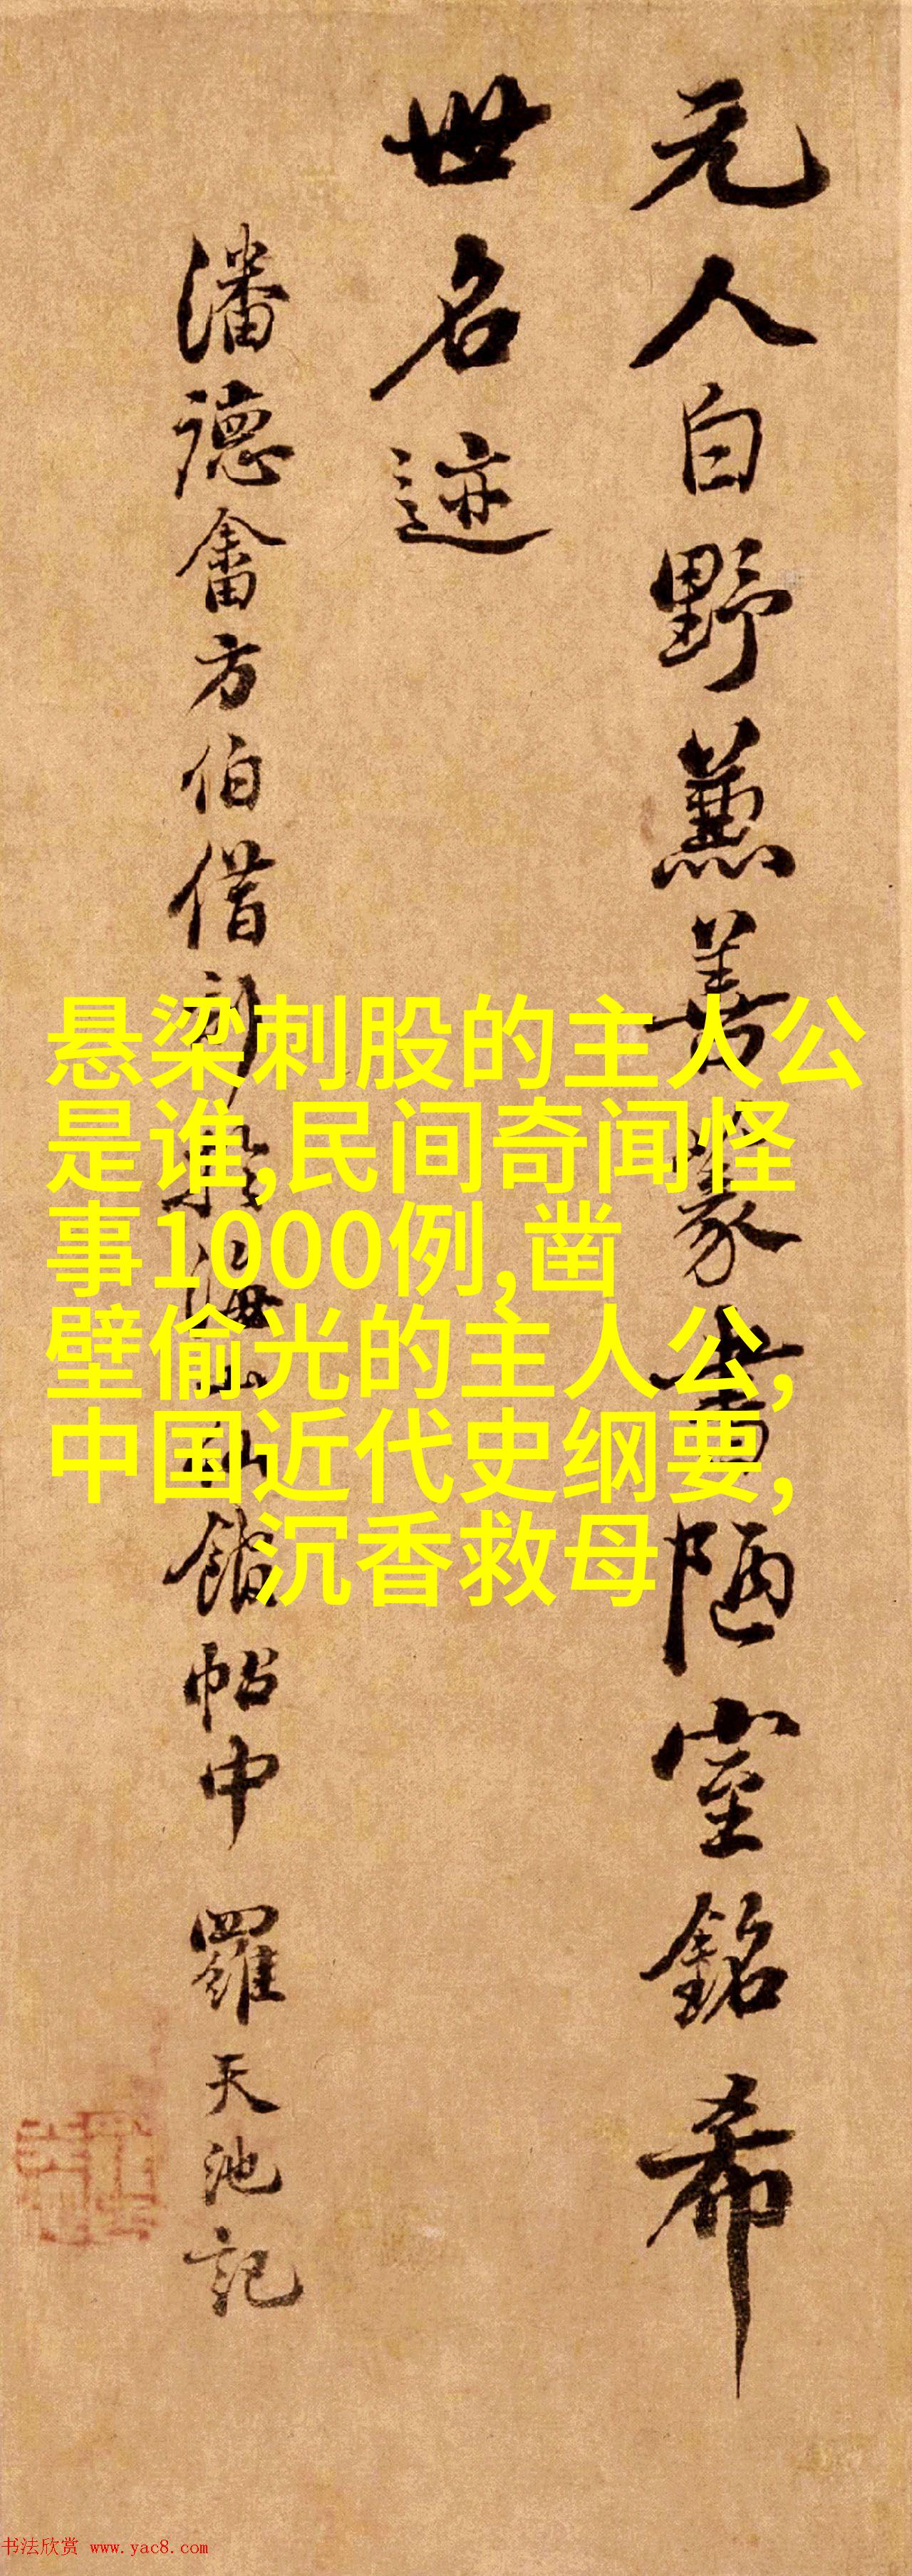 元人白野兼善篆書陋室銘希
世名迹
潘德畬方伯借刻於海山仙館帖中 羅天池記
悬梁刺股的主人公
是谁,民间奇闻怪
事1000例,凿
壁偷光的主人公,
中国近代史纲要,
沉香救母
书法欣赏 www.yac8.com